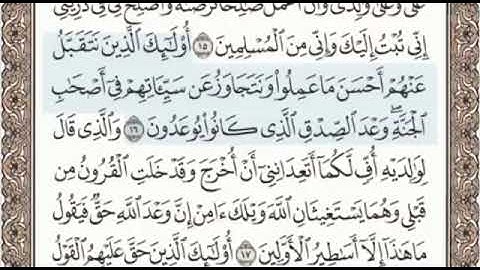 عَلَىَّ وَعَلَىٰ وَٰلِدَىَّ وَأَنْ أَعْمَلَ صَٰلِحًا تَرْضَىٰهُ وَأَصْلِحْ لِى فِى ذُرِّيَّتِىٓ
إِنِّى تُبْتُ إِلَيْكَ وَإِنِّى مِنَ ٱلْمُسْلِمِينَ ١٥ أُو۟لَٰٓئِكَ ٱلَّذِينَ نَتَقَبَّلُ
عَنْهُمْ أَحْسَنَ مَا عَمِلُوا۟ وَنَتَجَاوَزُ عَن سَيِّـَٔاتِهِمْ فِىٓ أَصْحَٰبِ
ٱلْجَنَّةِ ۖ وَعْدَ ٱلصِّدْقِ ٱلَّذِى كَانُوا۟ يُوعَدُونَ ١٦ وَٱلَّذِى قَالَ
لِوَٰلِدَيْهِ أُفٍّ لَّكُمَآ أَتَعِدَانِنِىٓ أَنْ أُخْرَجَ وَقَدْ خَلَتِ ٱلْقُرُونُ مِن
قَبْلِى وَهُمَا يَسْتَغِيثَانِ ٱللَّهَ وَيْلَكَ ءَامِنْ إِنَّ وَعْدَ ٱللَّهِ حَقٌّ فَيَقُولُ
مَا هَٰذَآ إِلَّآ أَسَٰطِيرُ ٱلْأَوَّلِينَ ١٧ أُو۟لَٰٓئِكَ ٱلَّذِينَ حَقَّ عَلَيْهِمُ ٱلْقَوْلُ